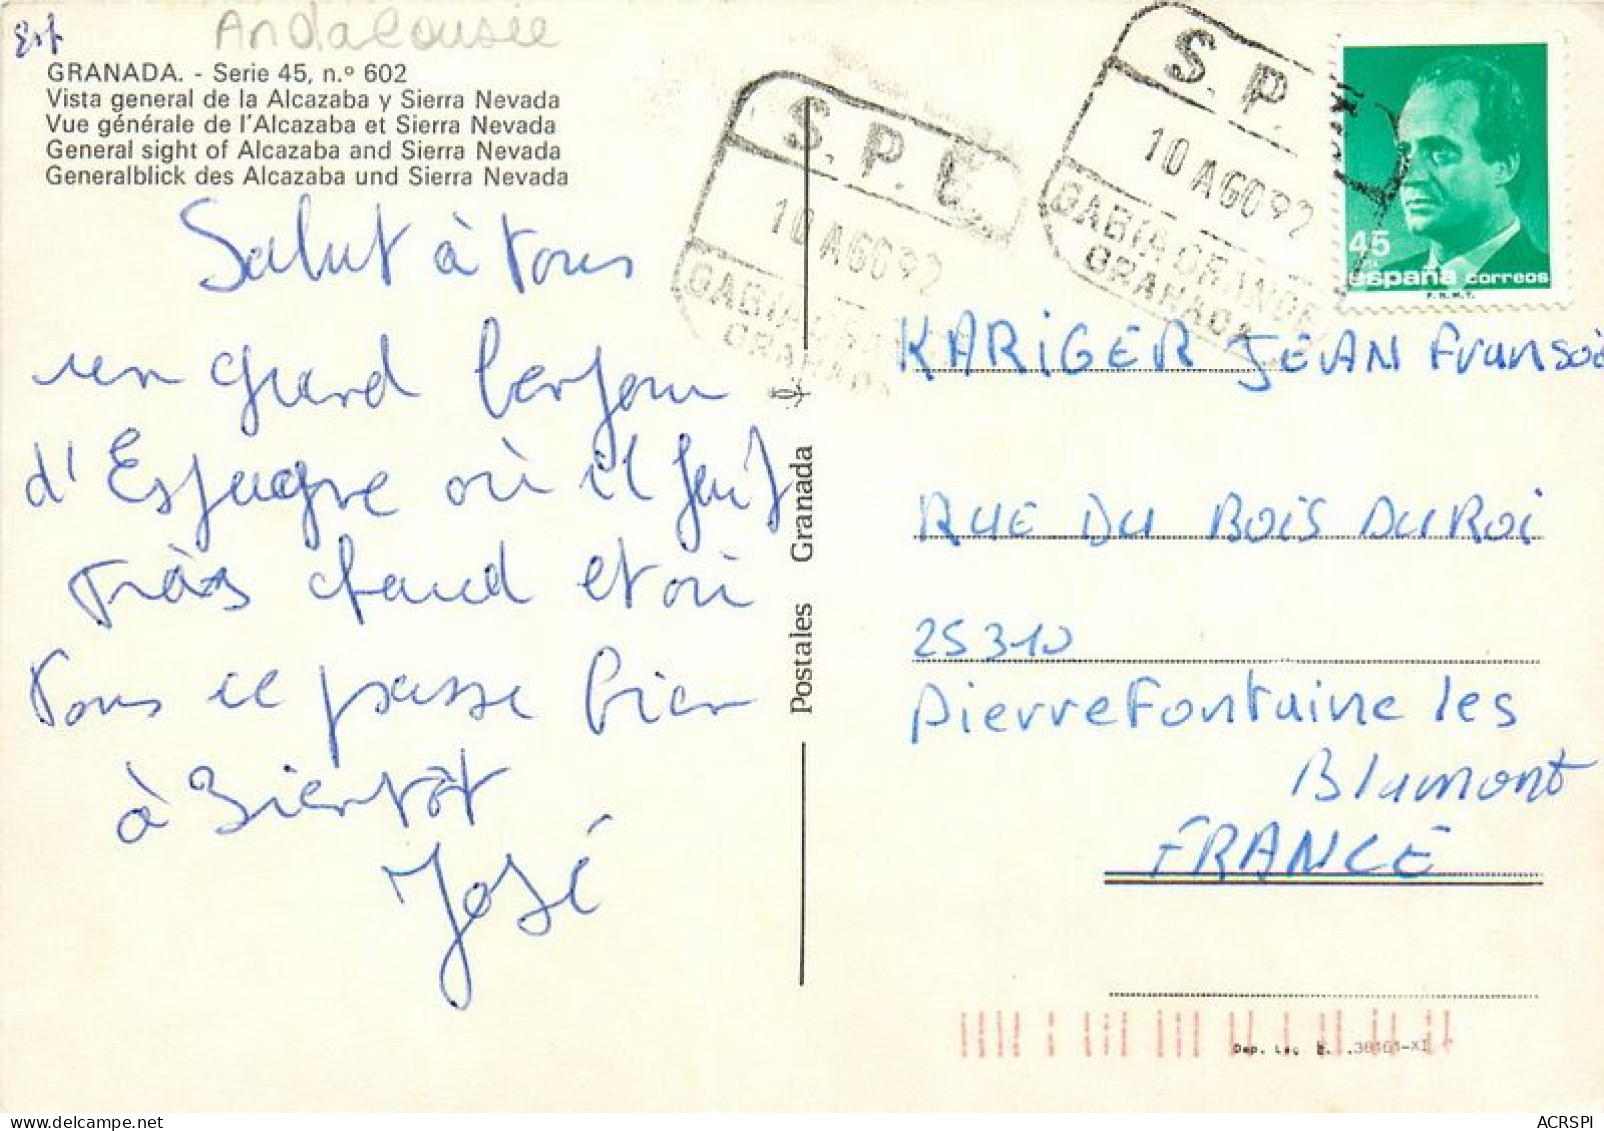 Esp
Andalousie
GRANADA. - Serie 45, n.º 602
Vista general de la Alcazaba y Sierra Nevada
Vue générale de l'Alcazaba et Sierra Nevada
General sight of Alcazaba and Sierra Nevada
Generalblick des Alcazaba und Sierra Nevada
Salut à tous
un grand bonjour
d'Espagne où il fait
très chaud et où
tous ce passe bien
à Bientôt
José
Postales Granada
S. P. E.
10 AGO 92
GABIA GRANDE
GRANADA
S. P.
10 AGO 92
GABIA GRANDE
GRANADA
45
PTA
españa correos
F.N.M.T.
KARIGER JEAN Fransoi
RUE DU BOIS DU ROI
25310
Pierrefontaine les
Blamont
FRANCE
Dep. Leg. B. 38161-XI
ACRSPI